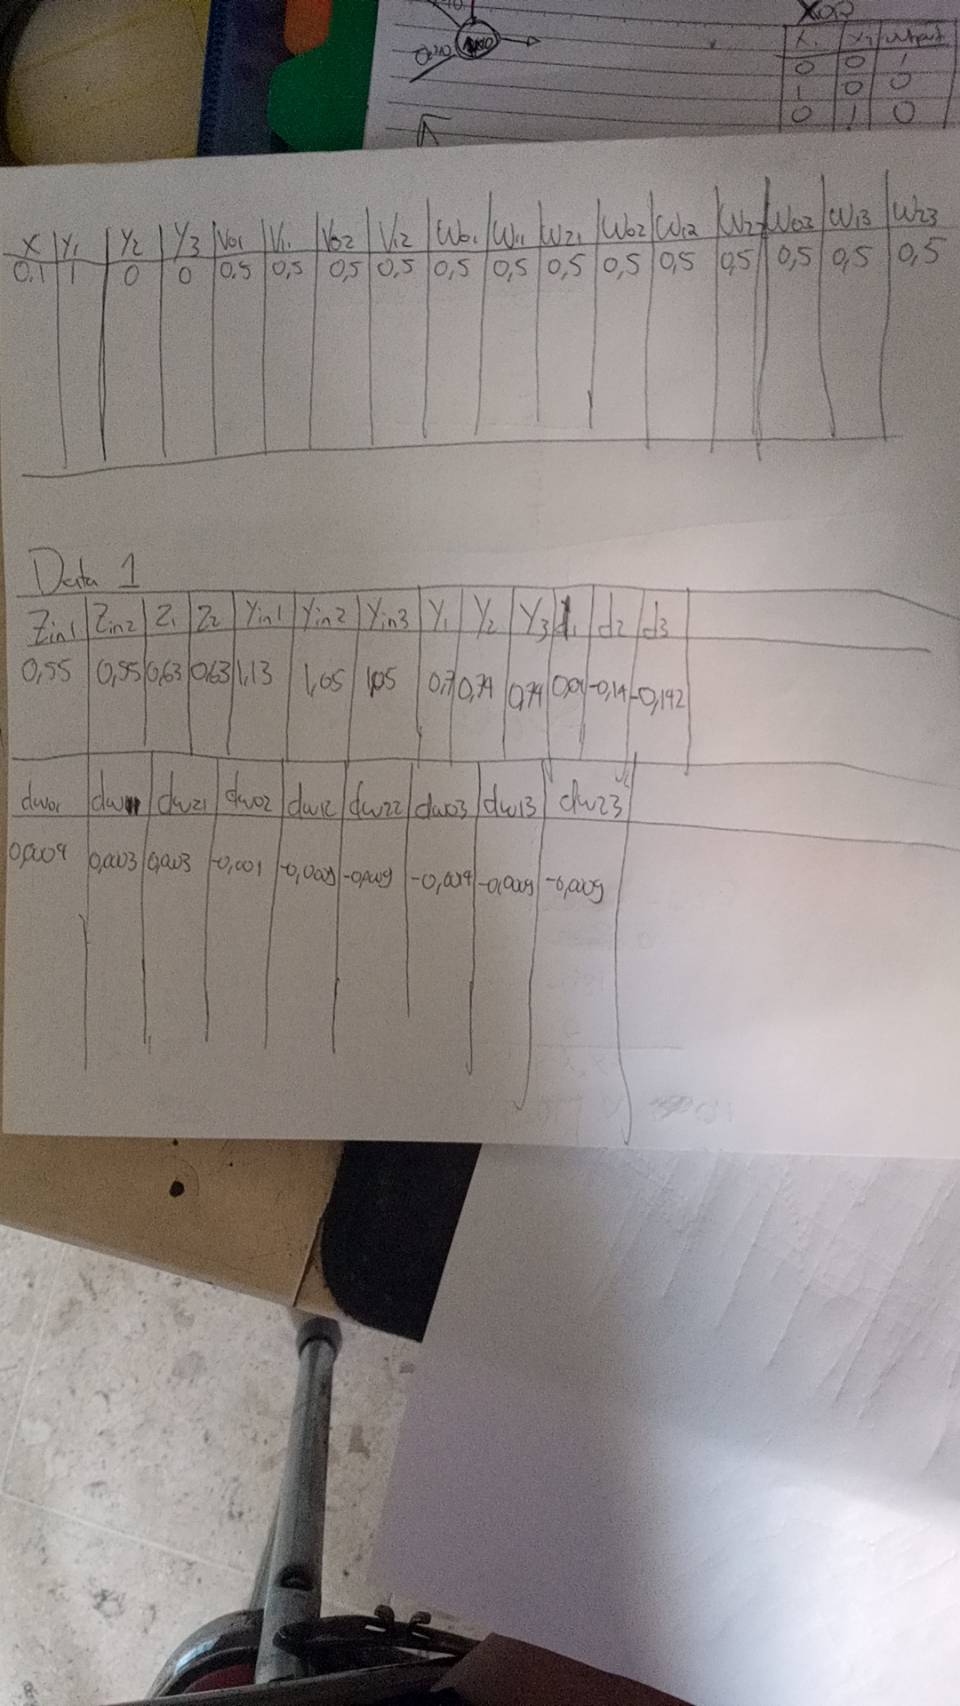 XOR
X1 output
0 0 1
1 0 0
0 1 0
X Y1 Y2 Y3 V01 V11 V02 V12 W01 W11 W21 W02 W12 W22 W03 W13 W23
0,1 1 0 0 0,5 0,5 0,5 0,5 0,5 0,5 0,5 0,5 0,5 0,5 0,5 0,5 0,5
Data 1
Zin1 Zin2 Z1 Z2 Yin1 Yin2 Yin3 Y1 Y2 Y3 d1 d2 d3
0,55 0,55 0,63 0,63 1,13 1,05 1,05 0,7 0,74 0,74 -0,14 -0,142
dw01 dw11 dw21 dw02 dw12 dw22 dw03 dw13 dw23
0,003 0,003 -0,001 -0,009